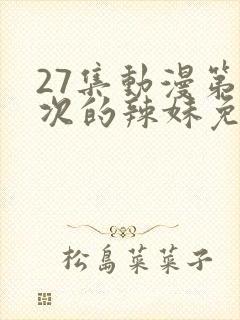 27集動漫第
次的辣妹免
松島菜菜子